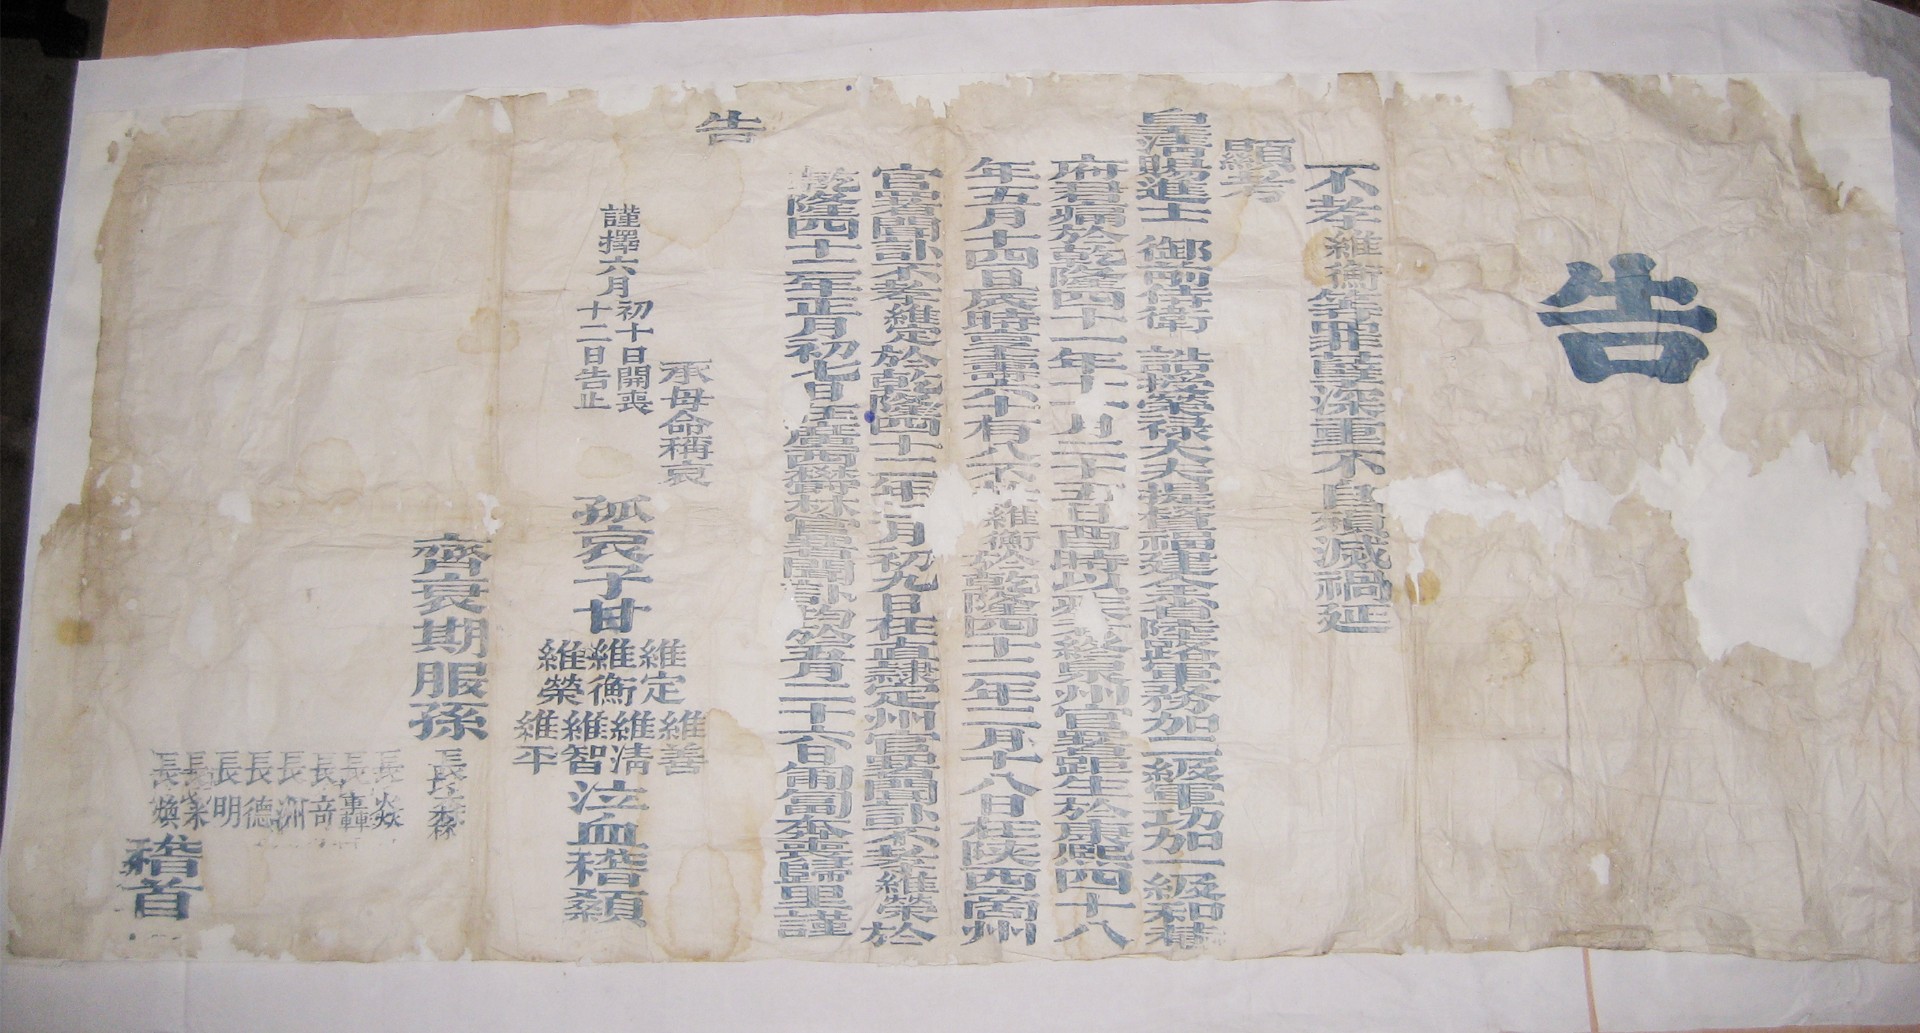 告
不孝維衡等罪孽深重不自殞滅禍延
顯考
皇清賜進士 御前侍衛 誥授榮祿大夫提督福建全省陸路軍務加二級軍功加一級和菴
府君痛於乾隆四十一年十一月二十五日酉時以疾終泉州官署距生於康熙四十八
年五月十四日辰時享壽六十有八不孝維衡於乾隆四十二年二月十八日在陝西商州
官署聞訃不孝維定於乾隆四十二年 月初九日在直隸定州官署聞訃不孝維榮於
乾隆四十二年正月初七日在廣西鬱林官署聞訃均於五月二十六日匍匐奔喪歸里謹
告
承母命稱哀
謹擇六月初十日開喪十二日告止
孤哀子甘維定維衡維榮維善維清維智維平泣血稽顙
齊衰期服孫長森長焱長轟長奇長洲長德長明長業長煥稽首